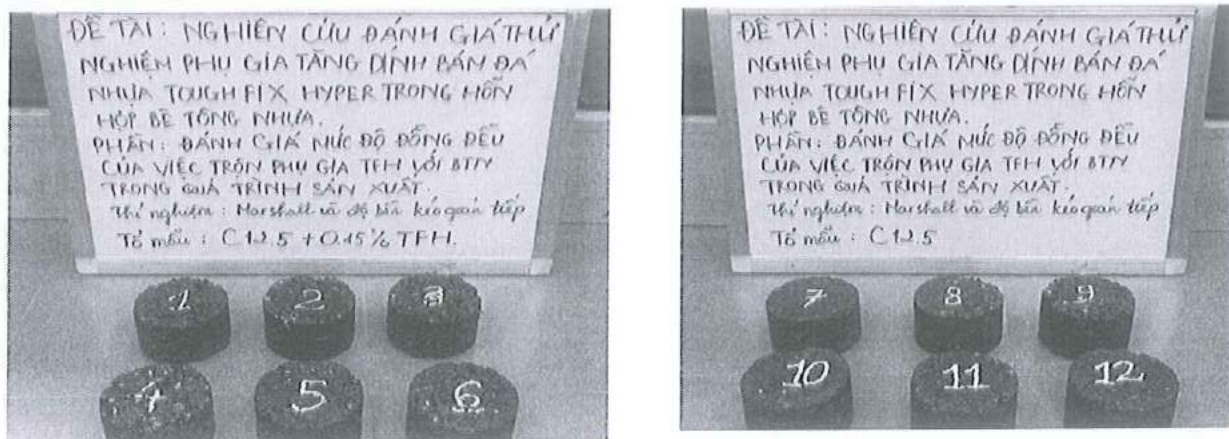 ĐỀ TÀI: NGHIÊN CỨU ĐÁNH GIÁ THỬ
NGHIỆM PHỤ GIA TĂNG DÍNH BÁM ĐÁ
NHỰA TOUGH FIX HYPER TRONG HỖN
HỢP BÊ TÔNG NHỰA.
PHẦN: ĐÁNH GIÁ MỨC ĐỘ ĐỒNG ĐỀU
CỦA VIỆC TRỘN PHỤ GIA TFH VỚI BTN
TRONG QUÁ TRÌNH SẢN XUẤT.
Thí nghiệm: Marshall và độ bền kéo gián tiếp
Tổ mẫu: C12.5 + 0.15% TFH.
1 2 3
4 5 6
ĐỀ TÀI: NGHIÊN CỨU ĐÁNH GIÁ THỬ
NGHIỆM PHỤ GIA TĂNG DÍNH BÁM ĐÁ
NHỰA TOUGH FIX HYPER TRONG HỖN
HỢP BÊ TÔNG NHỰA.
PHẦN: ĐÁNH GIÁ MỨC ĐỘ ĐỒNG ĐỀU
CỦA VIỆC TRỘN PHỤ GIA TFH VỚI BTN
TRONG QUÁ TRÌNH SẢN XUẤT.
Thí nghiệm: Marshall và độ bền kéo gián tiếp
Tổ mẫu: C12.5
7 8 9
10 11 12